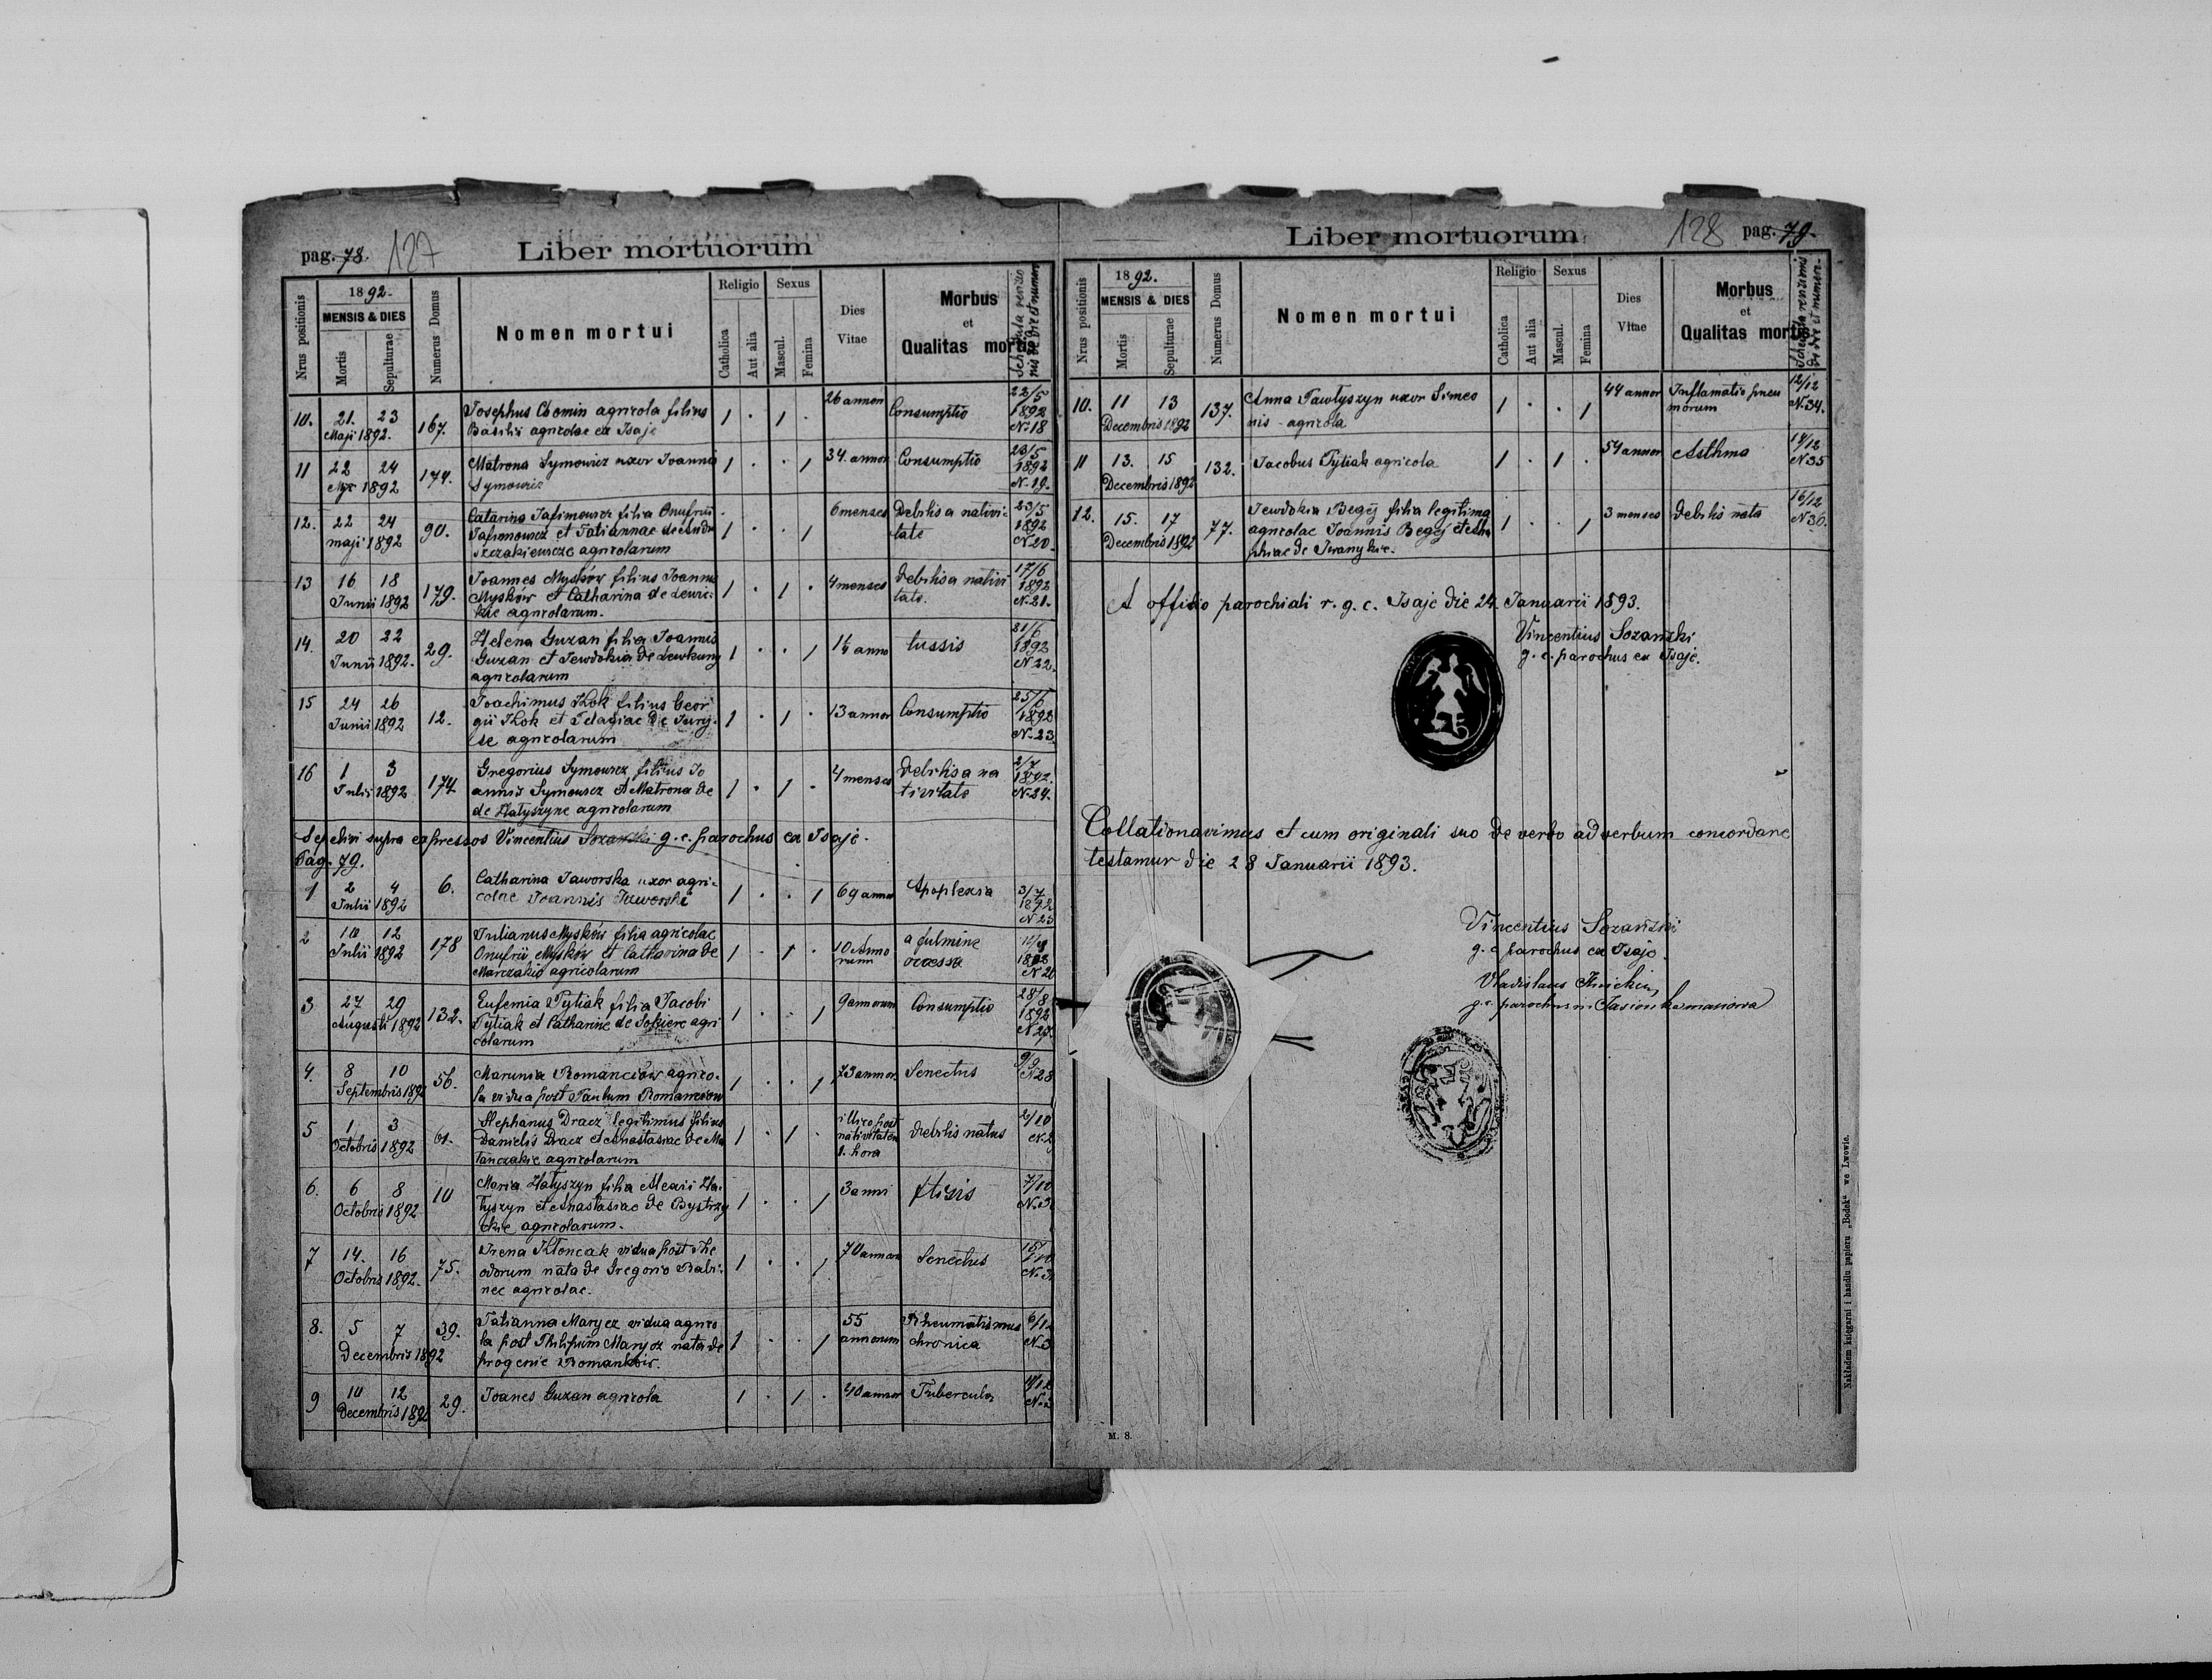 pag. 78. 127
Liber mortuorum
Nrus positionis
1892.
MENSIS & DIES
Mortis
Sepulturae
Numerus Domus
Nomen mortui
Religio
Catholica
Aut alia
Sexus
Mascul.
Femina
Dies
Vitae
Morbus
et
Qualitas mortis
10. 21. 23 Maji 1892. 167. Josephus Chomin agricola filius 1 . 1 . 26 annor Consumptio 22/5 1892 N. 18
Basilii agricolae ex Isaje
11 22 24 1892 174. Matrona Symowicz uxor Joannis 1 . . 1 34 annor Consumptio 23/5 1892 N. 19.
Symowicz
12. 22 24 maji 1892 90. Catarina Jasimowicz filia Onufrii 1 . . 1 6 menses Debilis a nativi- 23/5 1892 N 20.
Jasimowicz et Tatiannae de tate
agricolarum
13 16 18 Junii 1892 179. Joannes Myśków filius Joannis 1 . 1 . 4 menses debilis a nativi 17/6 1892 N. 21.
Myśków et Catharina de Lewic- tate.
kie agricolarum.
14. 20 22 Junii 1892. 29. Helena Guzan filia Joannis 1 . . 1 1½ anno tussis 21/6 1892 N 22.
Guzan et Jewdokia de
agricolarum
15 24 26 Junii 1892 12. Joachimus Kok filius Geor 1 . 1 . 13 annor Consumptio 25/6 1892 N. 23
gii Kok et Pelagiae de
agricolarum
16 1 3 Julii 1892 174 Gregorius Symowicz filius Jo 1 . 1 . 4 menses debilis a na 2/7 1892. N. 24.
annis Symowicz et Matrona de tivitate
de Hałyszyne agricolarum
Sepelivi supra expressos Vincentius Sozanski g. c. parochus ex Isaje.
Pag. 79.
1 2 4 Julii 1892 6. Catharina Jaworska uxor agri- 1 . . 1 69 annor Apoplexia 3/7 1892 N 25
colae Joannis Jaworski
2 10 12 Julii 1892 178 Julianus Myśków filia agricolae 1 . 1 . 10 Anno a fulmine
Onufrii Myśków et Catharina de rum
Marczakie agricolarum
3 27 29 Augusti 1892 132. Eufemia Pytiak filia Jacobi 1 . . 1 9 annorum Consumptio 28/8 1892
Pytiak et Catharine de agri
colarum
4. 8 10 Septembris 1892 56. Marunia Romanciów agrico- 1 . . 1 73 annor. Senectus 9/9 N 28
la vidua post Paulum Romanciow
5 1 3 Octobris 1892 61. Stephanus Dracz legitimus filius 1 . 1 . illico post debilis natus 2/10
Danielis Dracz et Anastasiae de Ma nativitatem
tanczakie agricolarum 1. hora
6. 6 8 Octobris 1892 10 Maria Hałyszyn filia Alexii Ha- 1 . . 1 3 anni ftisis 7/10
łyszyn et Anastasiae de Bystrzy
ckie agricolarum.
7 14. 16 Octobris 1892. 75. Irena Kłonczak vidua post The 1 . . 1 70 annor Senectus 15/10
odorum nata de Gregorio Babi-
nec agricolae.
8. 5 7 Decembris 1892 39. Tatianna Marycz vidua agrico 1 . . 1 55 Rheumatismus 6/12
la post Philipum Marycz nata de annorum chronica
progenie Romankow.
9 10 12 Decembris 1892 29. Joanes Guzan agricola 1 . 1 . 40 annor Tubercula
128 pag. 79.
Liber mortuorum
Nrus positionis
1892.
MENSIS & DIES
Mortis
Sepulturae
Numerus Domus
Nomen mortui
Religio
Catholica
Aut alia
Sexus
Mascul.
Femina
Dies
Vitae
Morbus
et
Qualitas mortis
10. 11 13 Decembris 1892 137. Anna Pawłyszyn uxor Simeo 1 . . 1 44 annor Inflamatio pneu 12/12 N. 34.
nis - agricola morum
11 13. 15 Decembris 1892 132. Jacobus Pytiak agricola 1 . 1 . 54 annor Asthma 14/12 N 35
12. 15. 17 Decembris 1892 77. Jewdokia Begej filia legitima 1 . . 1 3 menses debilis nata 16/12 N 36.
agricolae Joannis Begej et Anna
de Iwanykie.
A officio parochiali r. g. c. Isaje die 24. Januarii 1893.
Vincentius Sozański
g. c. parochus ex Isaje.
Collationavimus et cum originali suo de verbo ad verbum concordare
testamur die 28 Januarii 1893.
Vincentius Sozański
g. c. parochus ex Isaje.
Vladislaus
g. c. parochus in Jasionka masiowa
M. 8.
Nakładem księgarni i handlu papieru „Bodek“ we Lwowie.